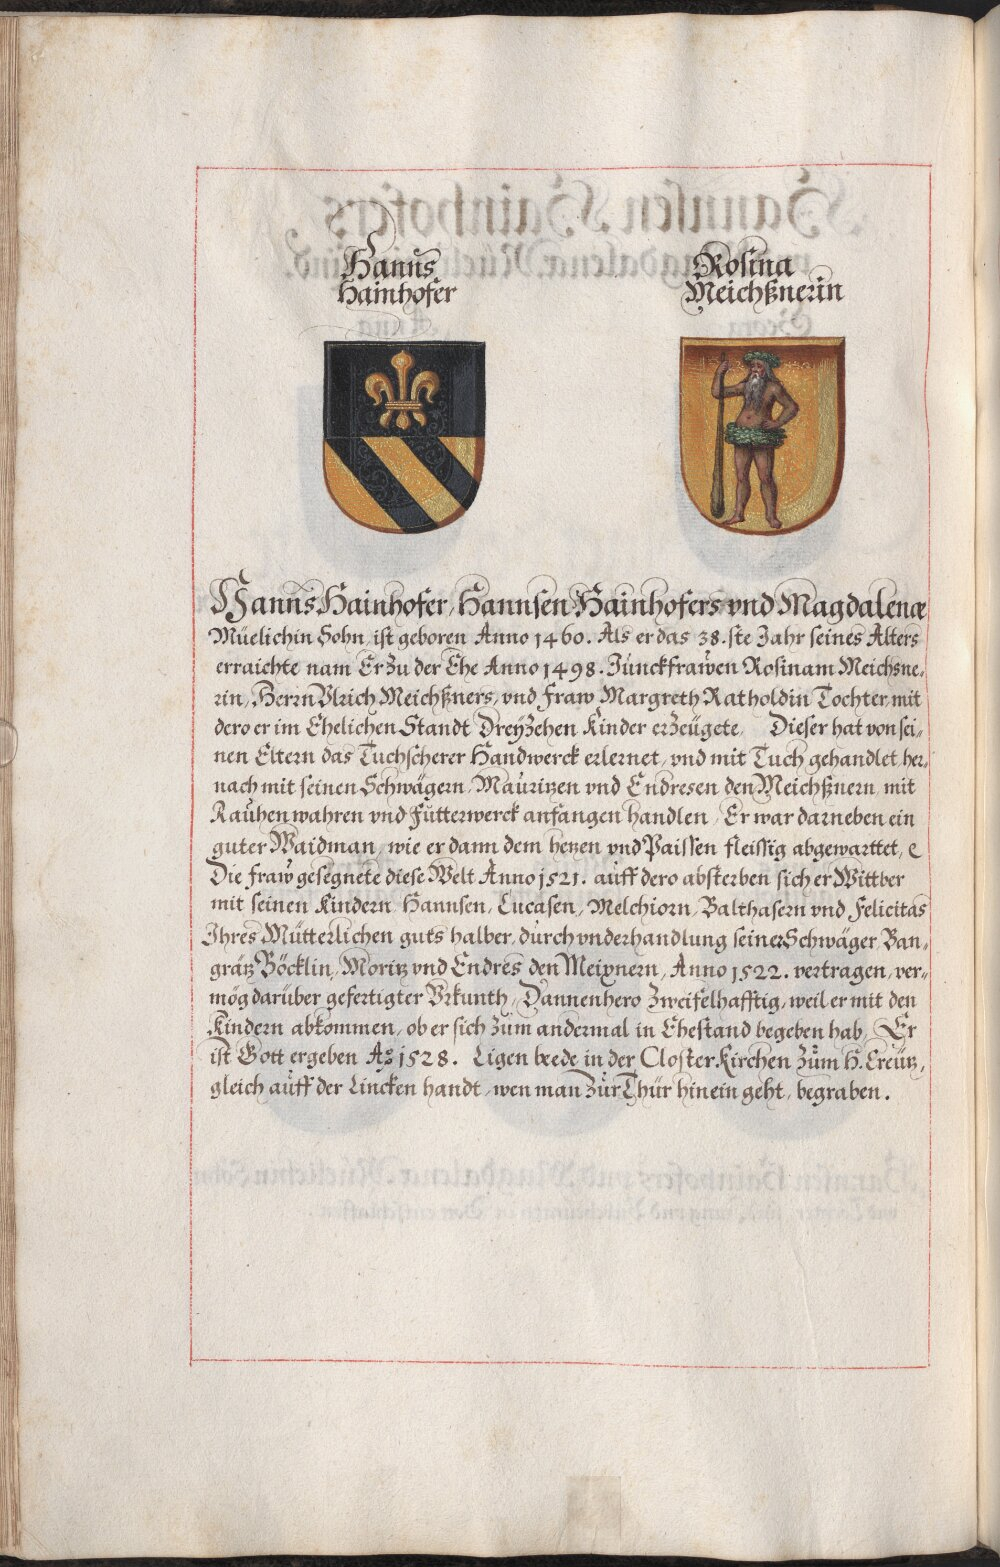 Hanns
Hainhofer
Rosina
Meichßnerin
Hanns Hainhofer, Hannsen Hainhofers vnd Magdalenæ
Müelichin Sohn, ist geboren Anno 1460. Als er das 38.ste Jahr seines Alters
erraichte nam Er zu der Ehe Anno 1498. Junckfrawen Rosinam Meichsne-
rin, Herrn Vlrich Meichßners, vnd Fraw Margreth Ratholdin Tochter, mit
dero er im Ehelichen Standt Dreyzehen Kinder erzeugete, Dieser hat von sei-
nen Eltern das Tuchscherer Handwerck erlernet, vnd mit Tuch gehandlet, her-
nach mit seinen Schwägern, Mauritzen vnd Endresen den Meichßnern, mit
Rauhen wahren vnd Futterwerck anfangen handlen, Er war darneben ein
guter Waidman, wie er dann dem hetzen vnd Paissen fleissig abgewarttet,
Die fraw gesegnete diese Welt Anno 1521. auff dero absterben sich er Wittber
mit seinen Kindern Hannsen, Lucasen, Melchiorn, Balthasern vnd Felicitas
Ihres Mütterlichen guts halber, durch vnderhandlung seiner Schwäger, Ban-
grätz Böcklin, Moritz vnd Endres den Meixnern, Anno 1522. vertragen, ver-
mög darüber gefertigter Vrkunth, Dannenhero zweifelhafftig, weil er mit den
Kindern abkommen, ob er sich zum andermal in Ehestand begeben hab, Er
ist Gott ergeben Ao 1528. Ligen beede in der Closter Kirchen zum H. Creütz,
gleich auff der Lincken handt, wen man zur Thür hinein geht, begraben.